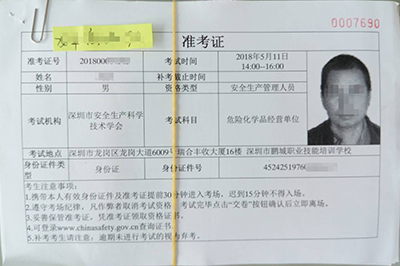 0007690
准考证
准考证号 201800 考试时间 2018年5月11日 14:00--16:00
姓名 补考截止时间
性别 男 资格类型 安全生产管理人员
考试机构 深圳市安全生产科学技术学会 考试科目 危险化学品经营单位
考试地点 深圳市龙岗区龙岗大道6009号瑞合丰收大厦16楼 深圳市鹏城职业技能培训学校
身份证件类型 身份证 身份证件号 4524251976
考生注意事项:
1.携带本人有效身份证件及准考证提前30分钟进入考场，迟到15分钟不得入场。
2.遵守考场纪律，凡作弊者取消考试资格，考试完毕点击“交卷”按钮确认后立即离场。
3.妥善保管准考证，凭准考证领取资格证书。
4.可登录www.chinasafety.gov.cn查询证书。
5.补考考生请注意，逾期未进行考试的视为弃考。